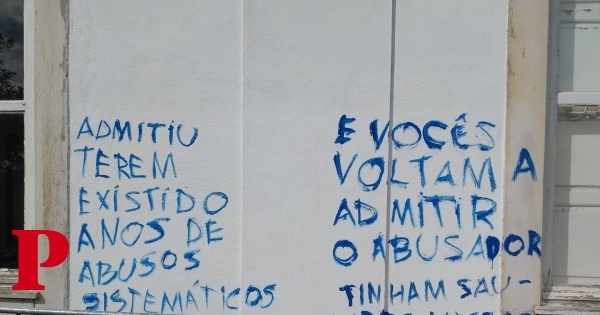 ADMITIU
TEREM
EXISTIDO
ANOS DE
ABUSOS
SISTEMÁTICOS
E VOCÊS
VOLTAM A
ADMITIR
O ABUSADOR
TINHAM SAU-
P